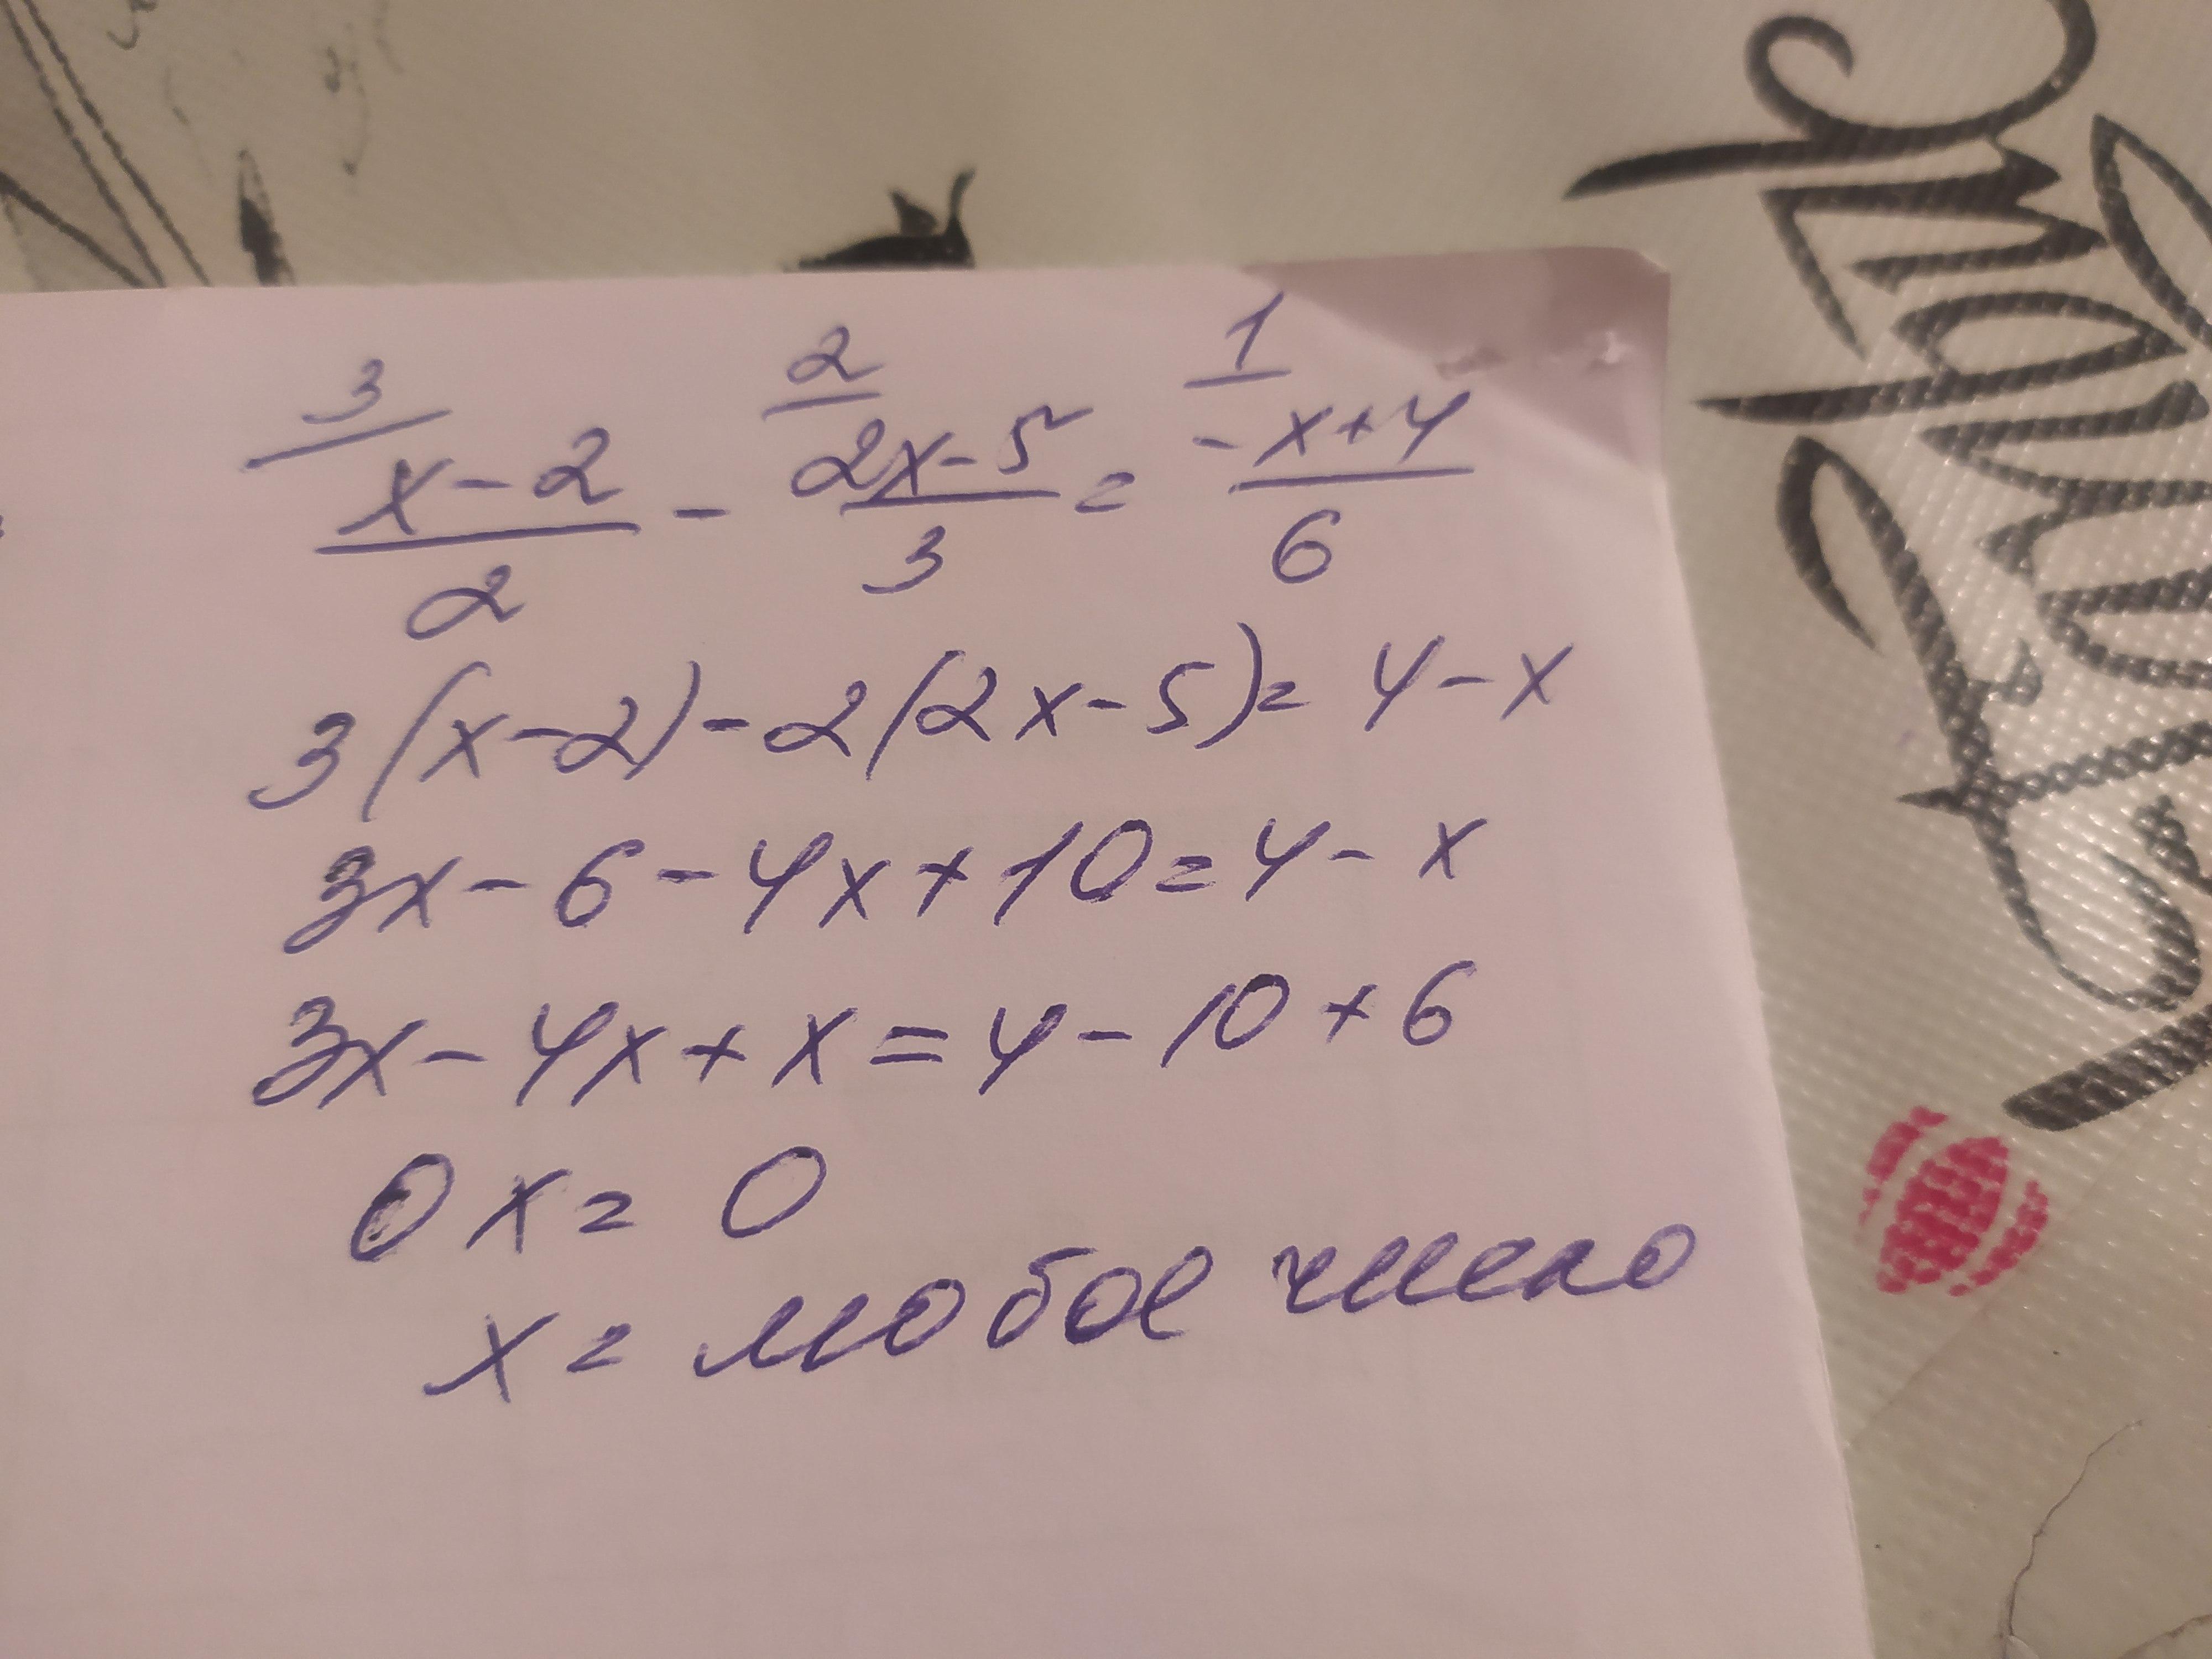 3 2 1
x-2/2 - 2x-5/3 = -x+4/6
3(x-2)-2(2x-5)=4-x
3x-6-4x+10=4-x
3x-4x+x=4-10+6
0x=0
x= любое число